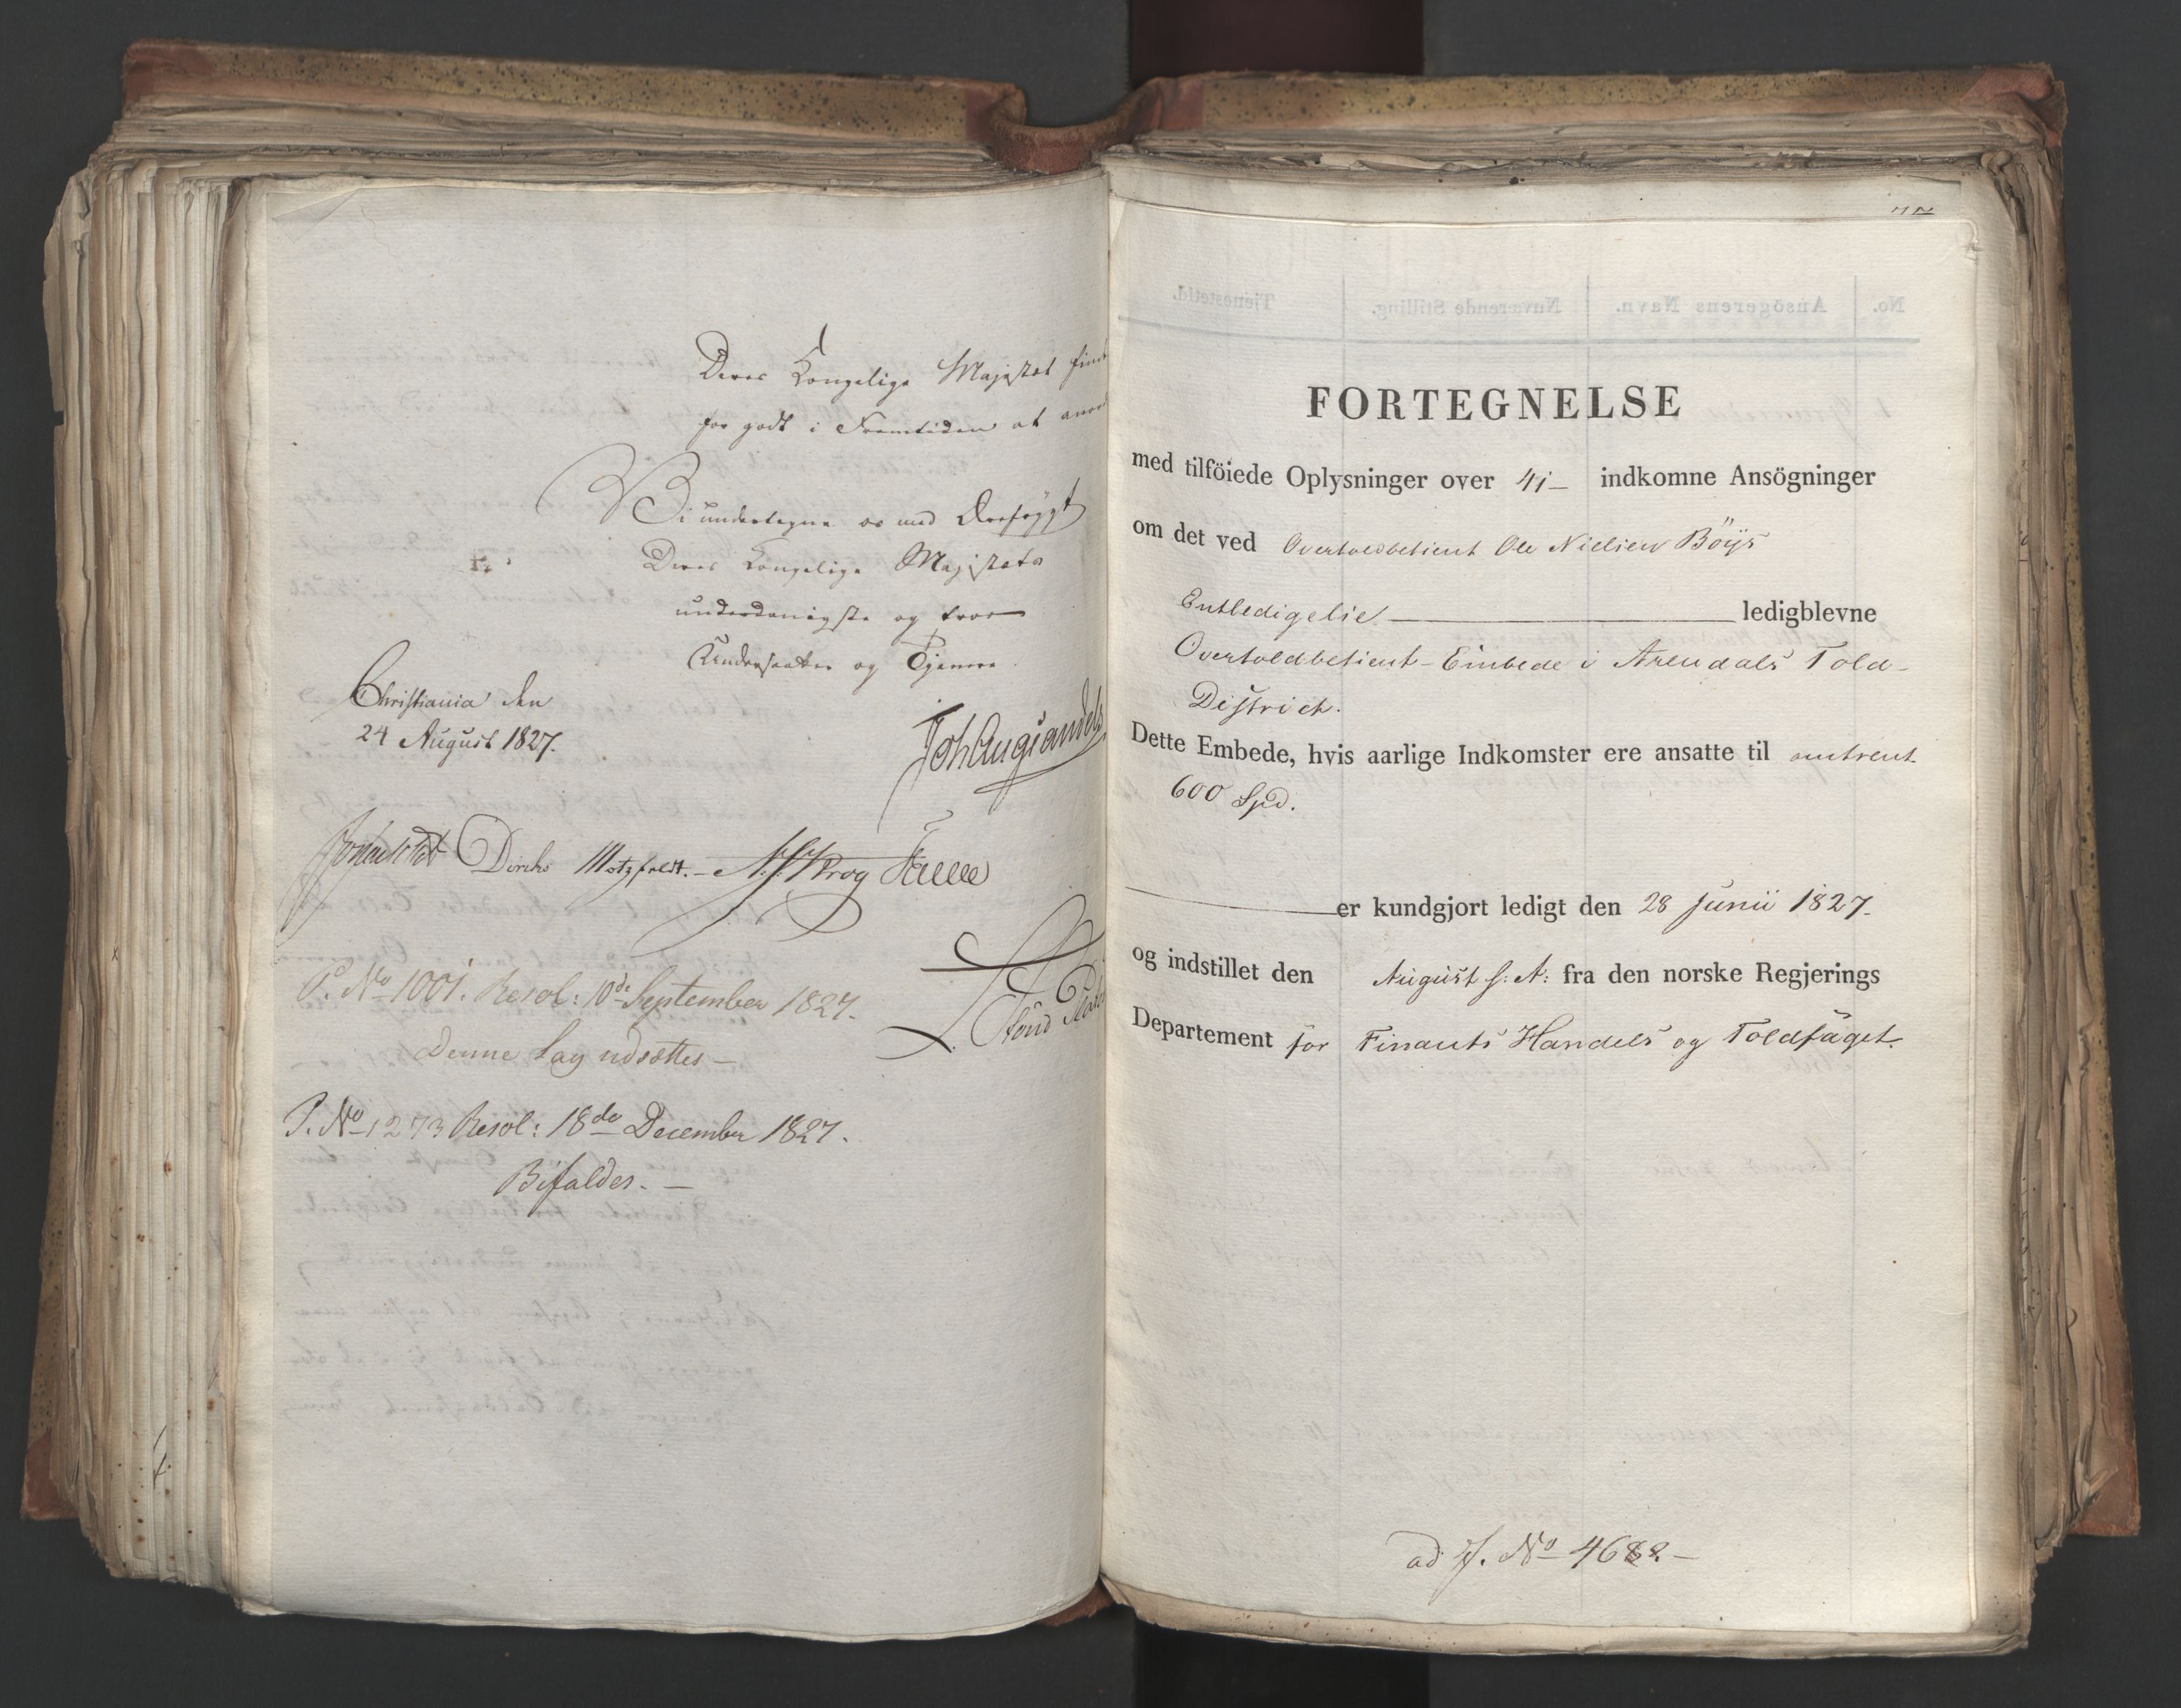 Deres Kongelige Majestæt find
for godt i Fremtiden at anord
Vi undertegne os med Ærefrygt
Deres Kongelige Majestæts
underdanigste og troe
Undersaatter og Tjenere.
Christiania den
24 August 1827.
Joh Aug Sandels
Jonas Collett Diriks Motzfeldt. N.J. Krog Fasting
P. No 1001. Resol: 10de September 1827.
Denne Sag udsættes —
P. No 1273 Resol: 18de December 1827.
Bifaldes. —
FORTEGNELSE
med tilföiede Oplysninger over 41 — indkomne Ansögninger
om det ved Overtoldbetient Ole Nielsen Böÿs
Entledigelse ledigblevne
Overtoldbetient-Embede i Arendals Told-
District.
Dette Embede, hvis aarlige Indkomster ere ansatte til omtrent
600 Spd.
er kundgjort ledigt den 28 Junii 1827.
og indstillet den August s: A: fra den norske Regjerings
Departement for Finants Handels og Toldfaget.
ad J. No 4682. —